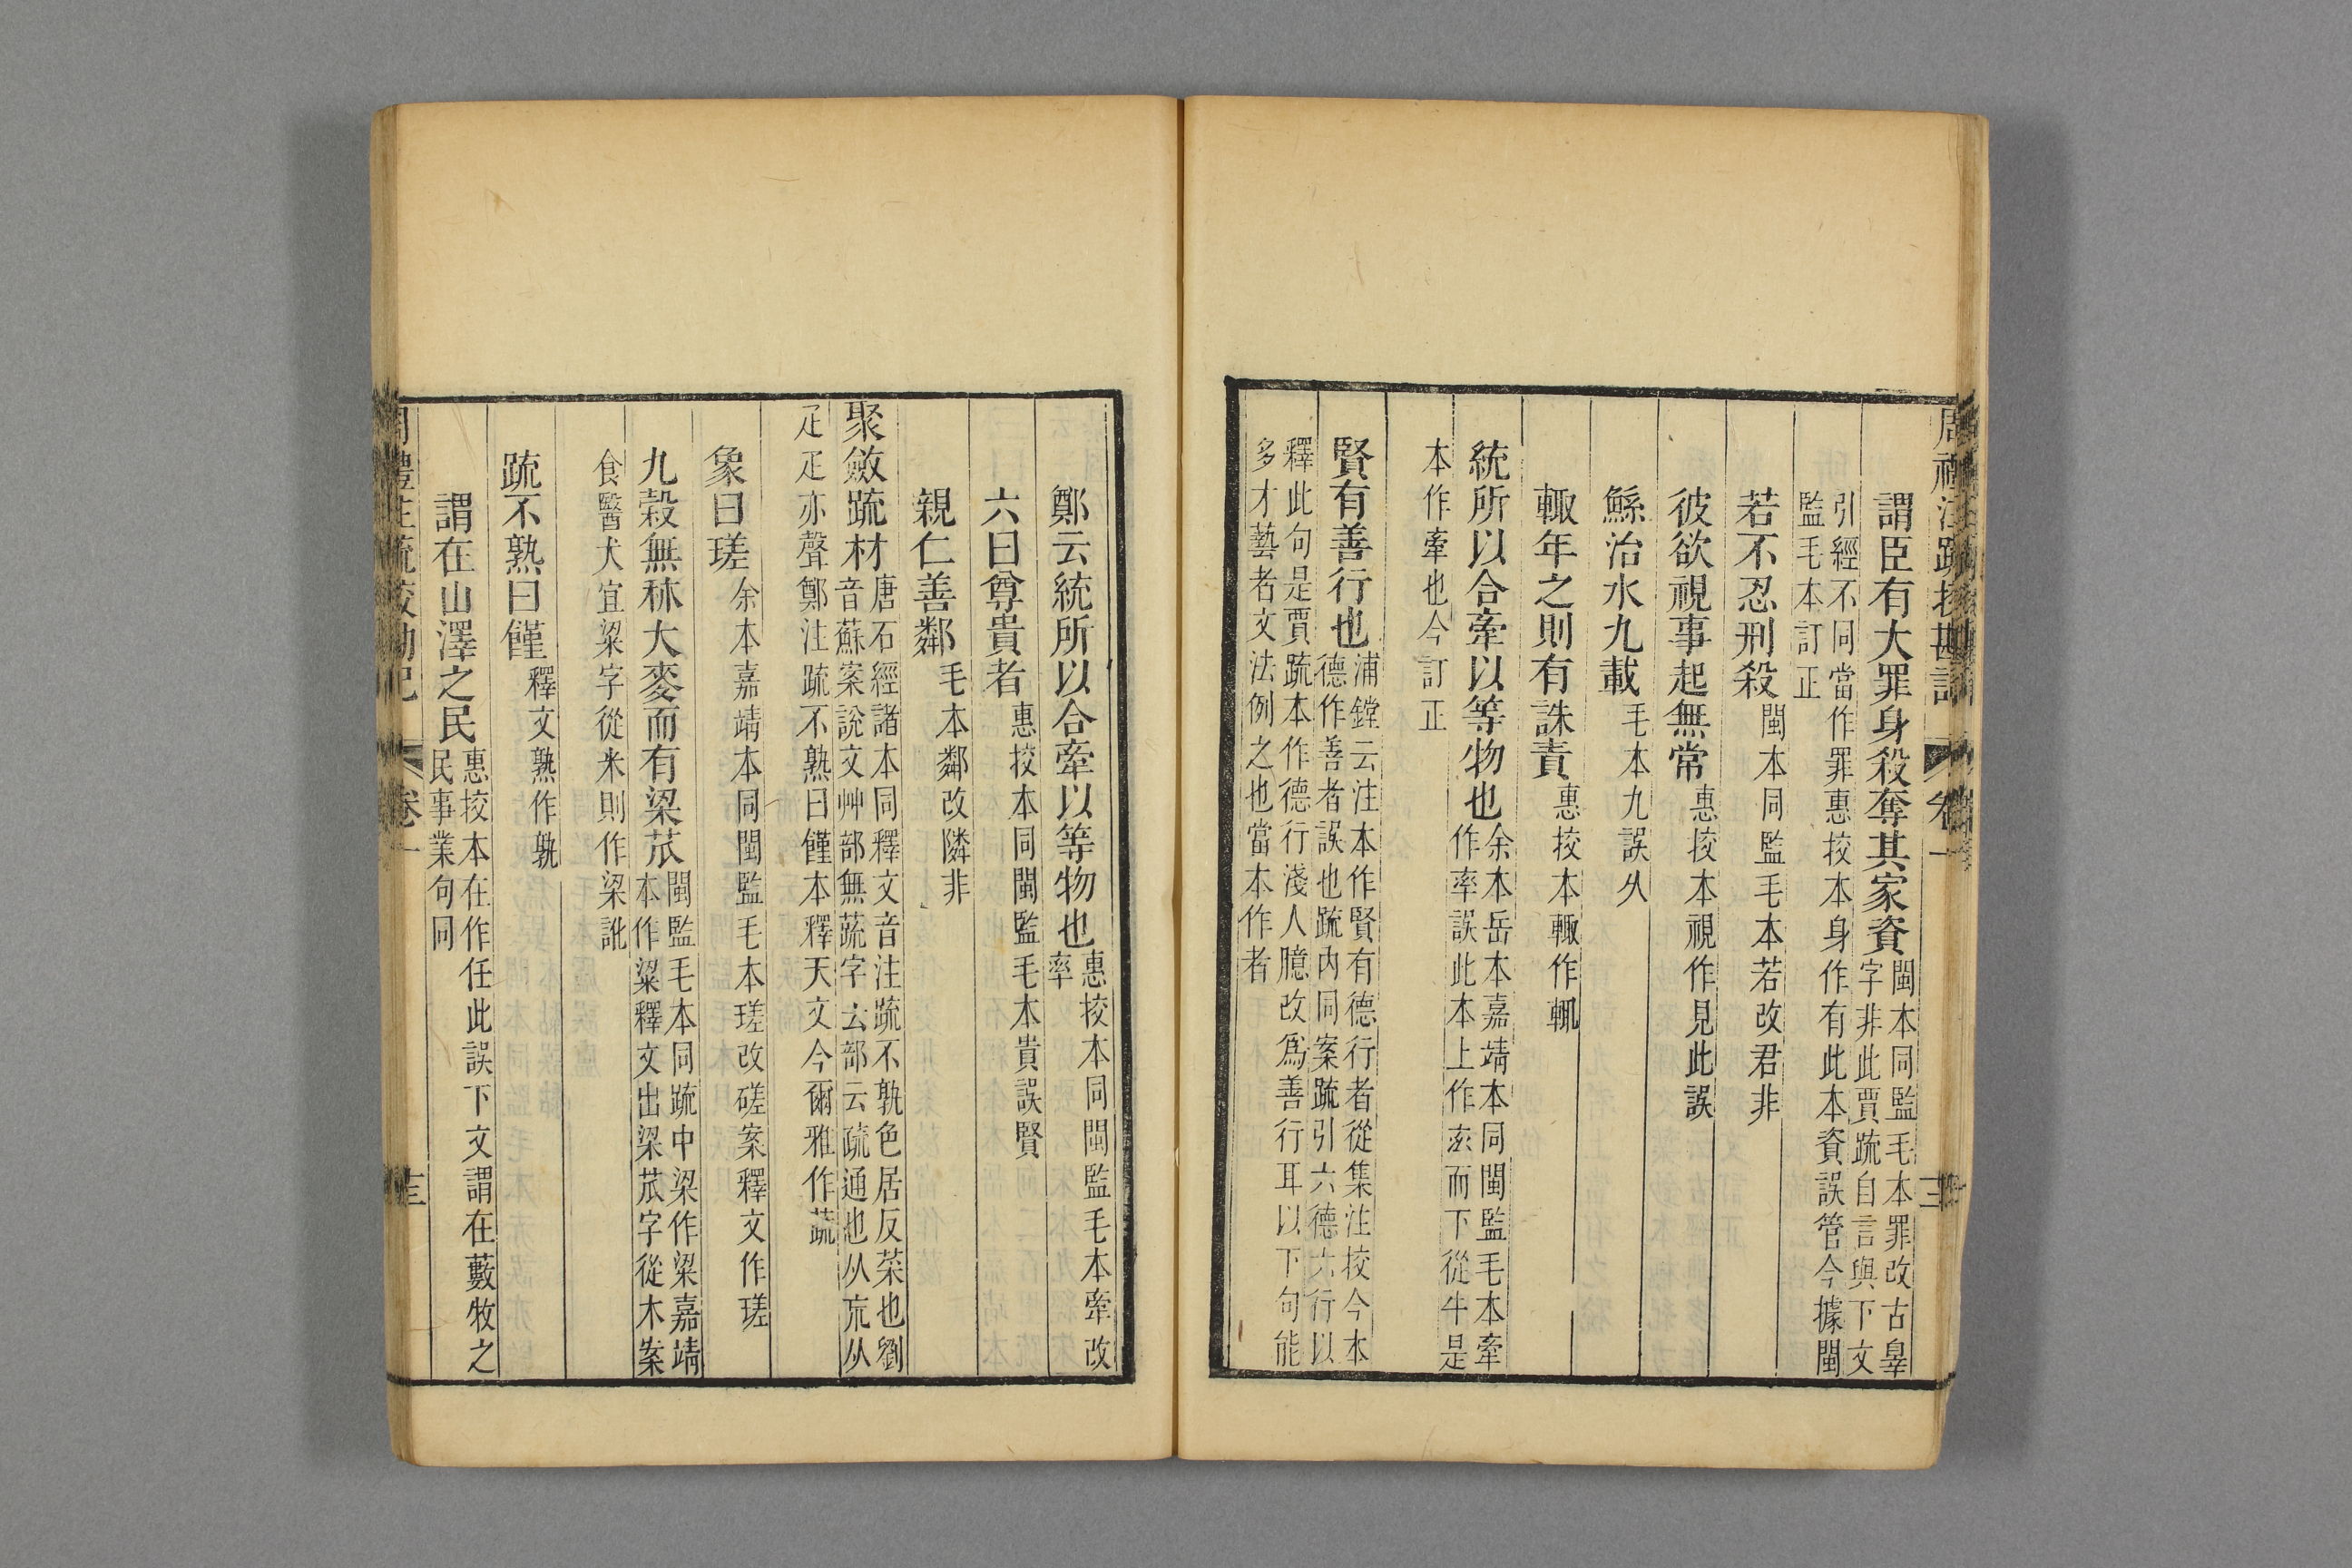 周禮注疏挍勘記 卷一
謂臣有大罪身殺奪其家資閩本同監毛本罪改古辠字非此賈疏自言與下文
引經不同當作罪惠挍本身作有此本資誤管今據閩監毛本訂正
若不忍刑殺閩本同監毛本若改君非
彼欲視事起無常惠挍本視作見此誤
鯀治水九載毛本九誤乆
輙年之則有誅責惠挍本輙作輒
統所以合牽以等物也余本岳本嘉靖本同閩監毛本牽作率誤此本上作玄而下從牛是
本作牽也今訂正
賢有善行也浦鏜云注本作賢有德行者從集注挍今本德作善者誤也疏内同案疏引六德六行以
釋此句是賈疏本作德行淺人臆改爲善行耳以下句能多才藝者文法例之也當本作者
鄭云統所以合牽以等物也惠挍本同閩監毛本牽改率
六曰尊貴者惠挍本同閩監毛本貴誤賢
親仁善鄰毛本鄰改隣非
聚斂疏材唐石經諸本同釋文音注疏不孰色居反菜也劉音蘇案說文艸部無蔬字𠫓部云疏通也从㐬从
疋疋亦聲鄭注疏不熟曰饉本釋天文今爾雅作蔬
象曰瑳余本嘉靖本同閩監毛本瑳改磋案釋文作瑳
九穀無秫大麥而有梁苽閩監毛本同疏中梁作粱嘉靖本作粱釋文出梁苽字從木案
食醫犬宜粱字從米則作梁訛
疏不熟曰饉釋文熟作孰
謂在山澤之民惠挍本在作任此誤下文謂在藪牧之民事業句同
周禮注疏挍勘記 卷一 三